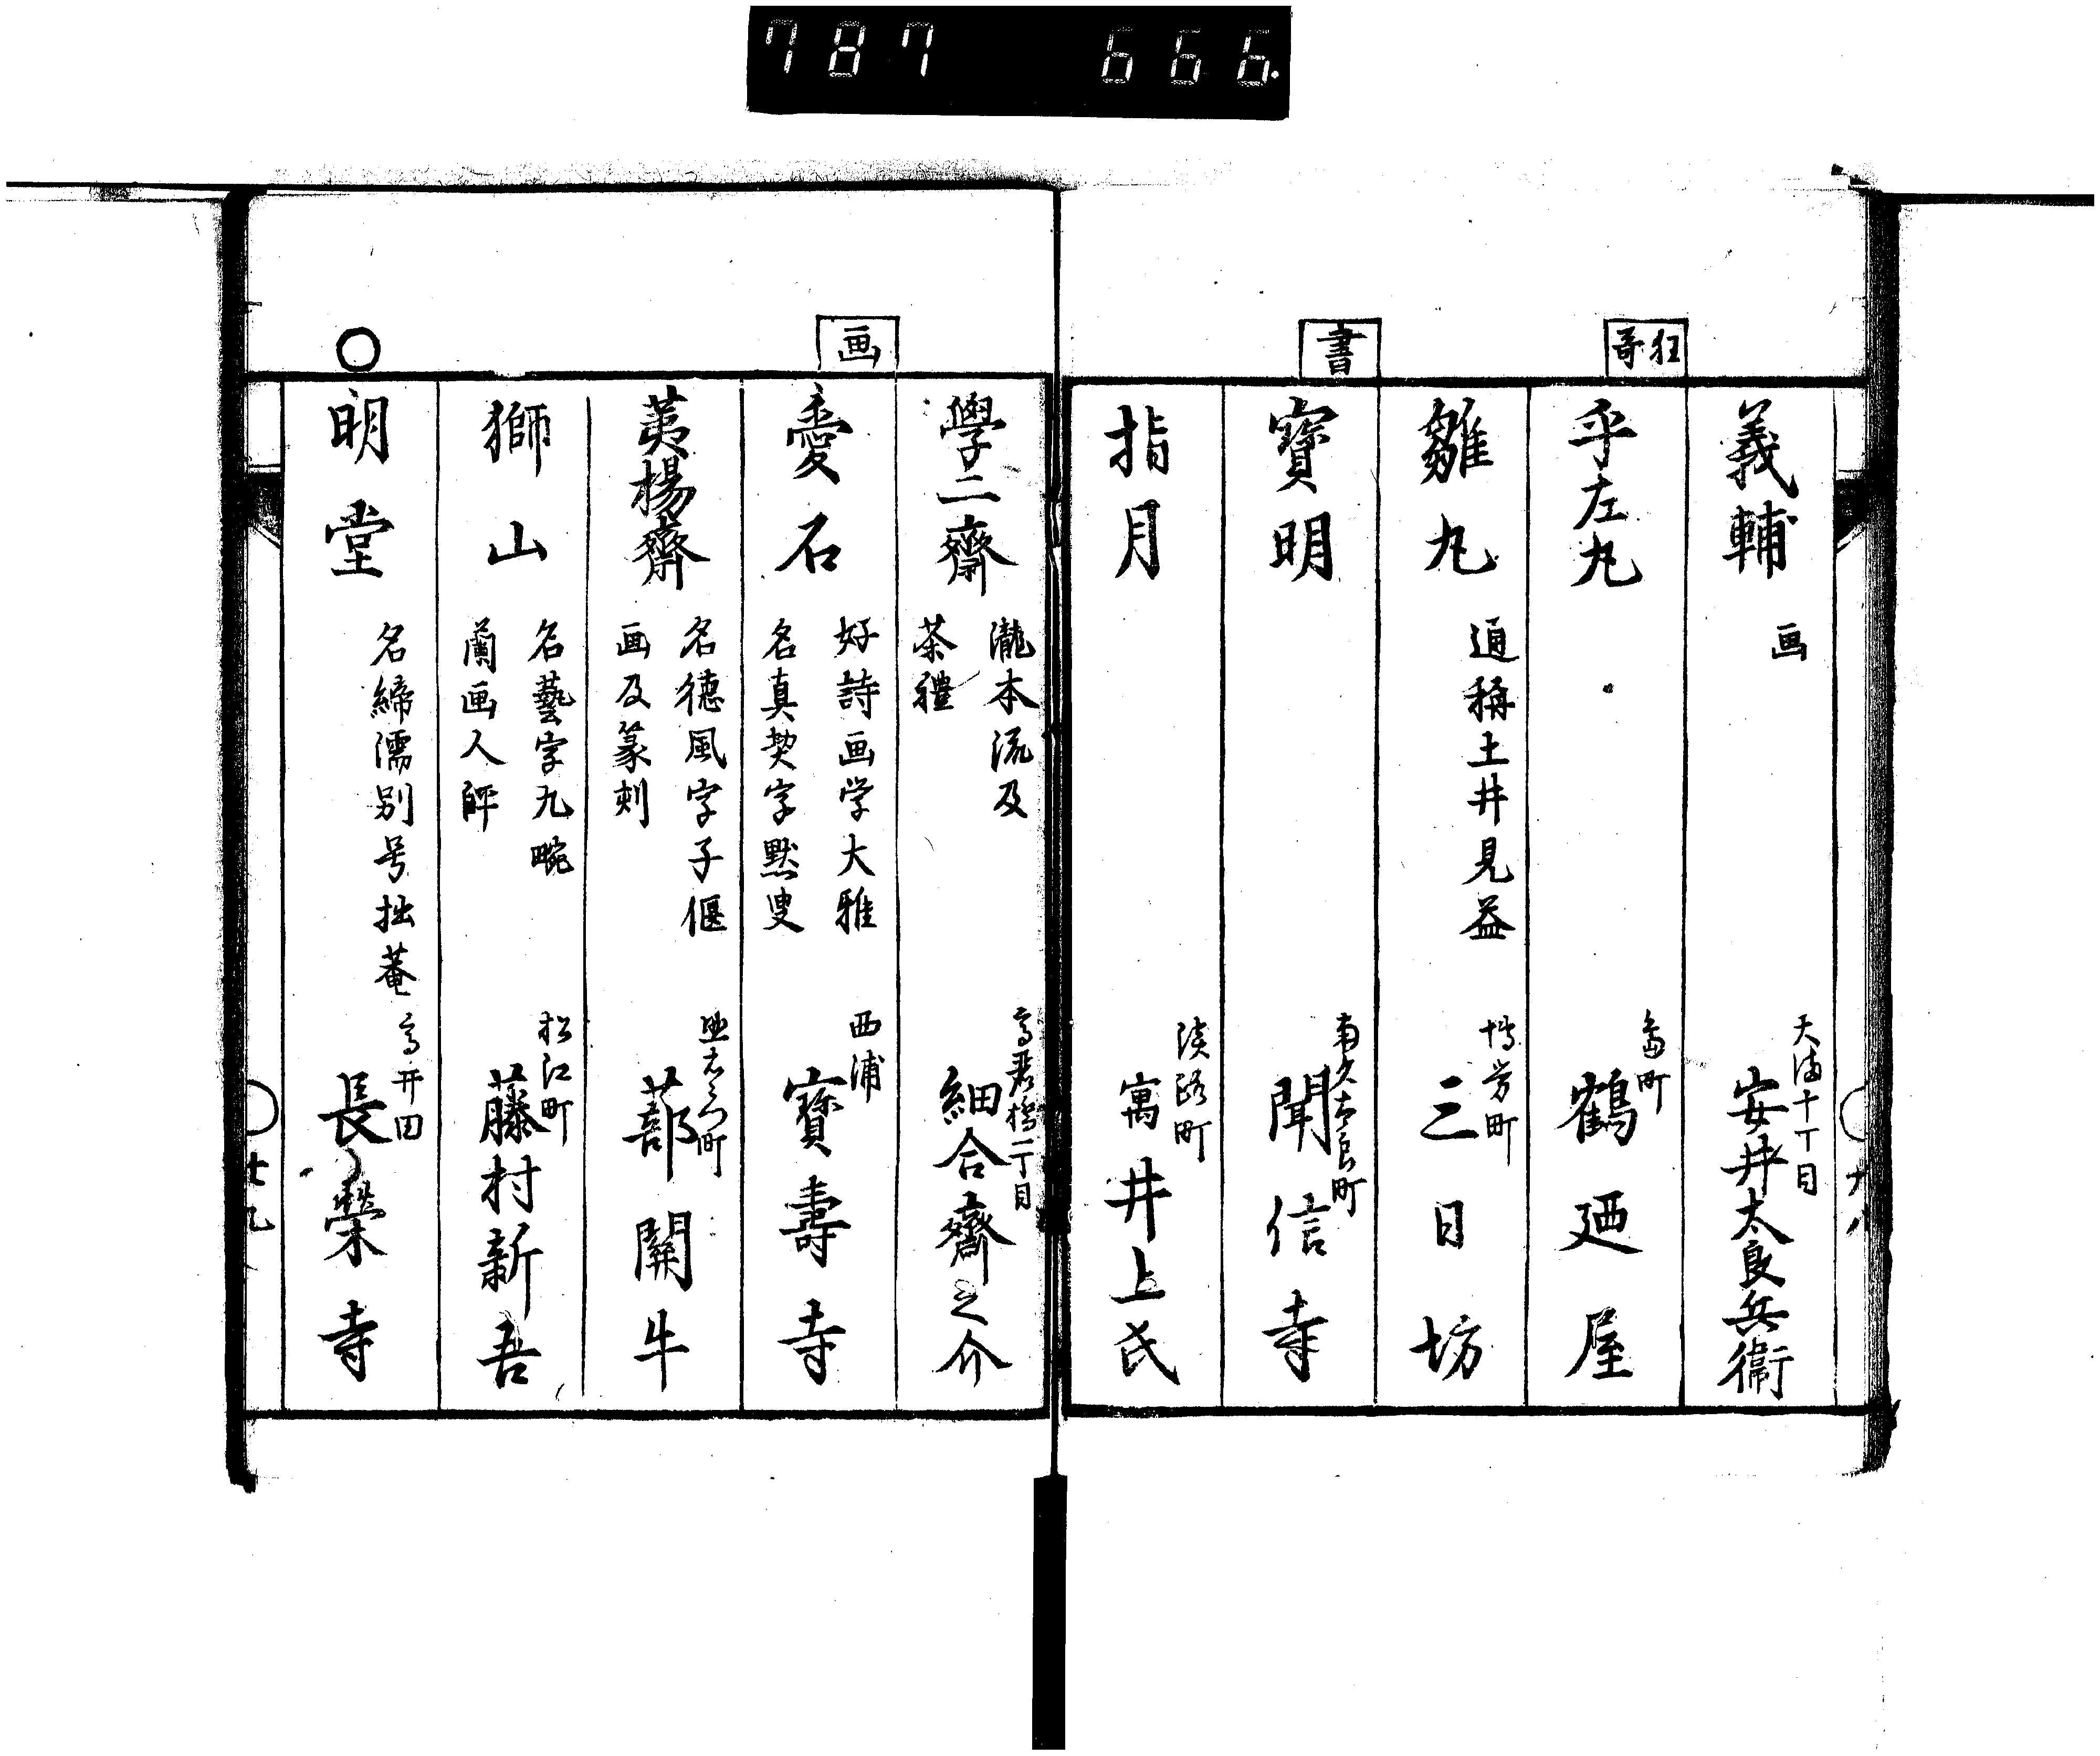 787 666.
義輔
画
天満十丁目
安井太良兵衞
狂哥
乎左丸
島町
鶴廼屋
雛丸
通稱土井見益
博労町
三日坊
書
寳明
南久太良町
聞信寺
指月
淡路町
寓井上氏
學二齋
瀧本流及
茶禮
高麗橋二丁目
細合齋之介
画
愛石
好詩画学大雅
名真契字黙叟
西浦
寳壽寺
荑楊齋
名德風字子偃
画及篆刻
蔀關牛
獅山
名藝字九畹
蘭画人師
松江町
藤村新吾
○
明堂
名締濡別号拙菴
高井田
長榮寺